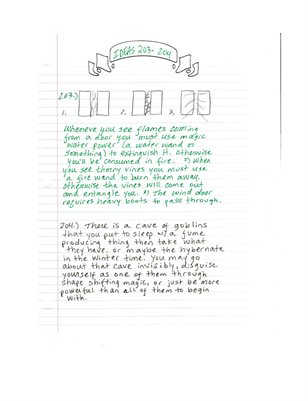 IDEAS 203-204
203.)
1. 2. 3.
Whenever you see flames coming
from a door you must use magic
"water power" (a water wand or
something) to extinguish it. Otherwise
you'll be consumed in fire. 2) When
you see thorny vines you must use
a fire wand to burn them away.
Otherwise the vines will come out
and entangle you. 3) The wind door
requires heavy boots to pass through.
204.) There is a cave of goblins
that you put to sleep w/ a fume
producing thing then take what
they have, or maybe the hybernate
in the winter time. You may go
about that cave invisibly, disguise
yourself as one of them through
shape shifting magic, or just be more
powerful than all of them to begin
with.